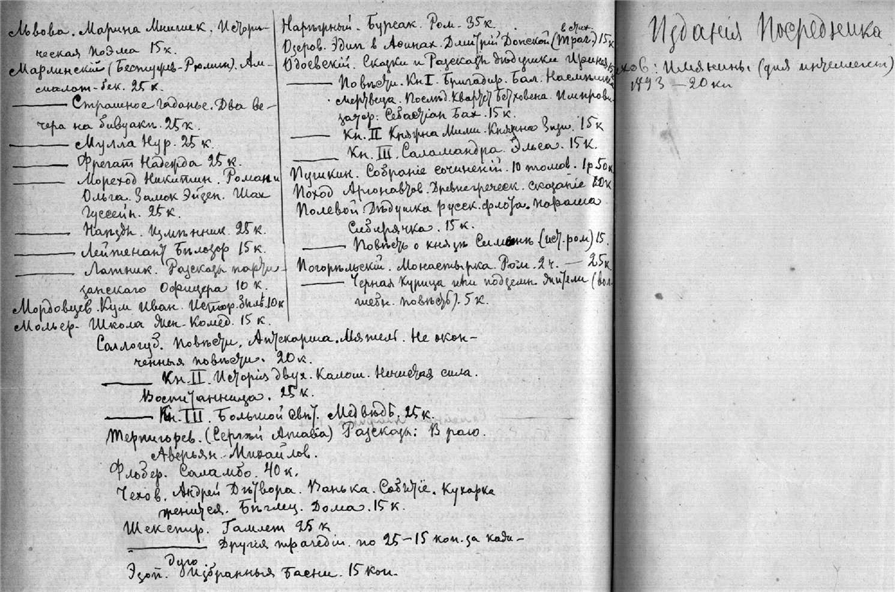 Львова. Марина Мнишек. Истори-
ческая поэма 15 к.
Марлинский (Бестужев-Рюмин). Ам-
малат-бек. 25 к.
Страшное гаданье. Два ве-
чера на бивуаки. 25 к.
Мулла Нур. 25 к.
Фрегат Надежда 25 к.
Мореход Никитин. Роман и
Ольга. Замок Эйзен. Шах
Гуссейн. 25 к.
Наѣзды. Измѣнник. 25 к.
Лейтенант Бѣлозор 15 к.
Латник. Разсказы парти-
занскаго Офицера 10 к.
Мордовцев. Кум Иван. Истор. 10 к
Мольер. Школа жен. Комед. 15 к.
Нарѣжный. Бурсак. Ром. 35 к.
Озеров. Эдип в Афинах. Дмитрій Донской (Траг. в стих.) 15 к
Одоевскій. Сказки и Разсказы дѣдушки Иринея
Повѣсти. Кн I. Бригадир. Бал. Насмѣшка
мертвеца. Послѣд. Квартет Бетховена. Импрови-
затор. Себастіан Бах. 15 к.
Кн. II Княжна Мими. Княжна Зизи. 15 к
Кн. III. Саламандра. Эльса. 15 к.
Пушкин. Собраніе сочиненій. 10 томов. 1 р. 50 к
Поход Аргонавтов. Древнегреческ. сказаніе 20 к
Полевой. Дѣдушка русск. флота. Параша
Сибирячка. 15 к.
Повѣсть о князѣ (ист. ром) 15.
Погорѣльскій. Монастырка. Ром. 2 ч. — 25 к
Черная Курица или подземн. жители (вол-
шебн. повѣсть). 5 к.
Саллогуб. Повѣсти. Аптекарша. Мятель. Не окон-
ченныя повѣсти. 20 к.
Кн. II. Исторія двух. Калош. Нечистая сила.
Воспитанница. 25 к.
Кн. III. Большой свѣт. Медвѣдь. 25 к.
Терпигорев. (Сергѣй Атава) Разсказы: В раю.
Аверьян. Михайлов.
Флобер. Саламбо. 40 к.
Чехов. Андрей Дѣтвора. Ванька. Событіе. Кухарка
женится. Бѣглец. Дома. 15 к.
Шекспир. Гамлет 25 к
Другія трагедіи. по 25–15 коп. за кажд-
дую
Эзоп. Избранныя Басни. 15 коп.
Изданія Посредника
ехов: Именины (для интеллиген)
1893 — 20 кп